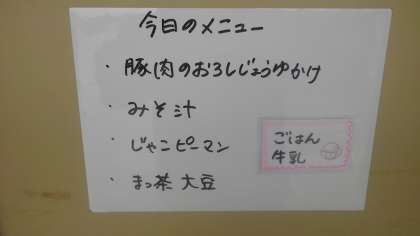 今日のメニュー
・豚肉のおろしじょうゆかけ
・みそ汁
・じゃこピーマン
・まっ茶大豆
ごはん
牛乳